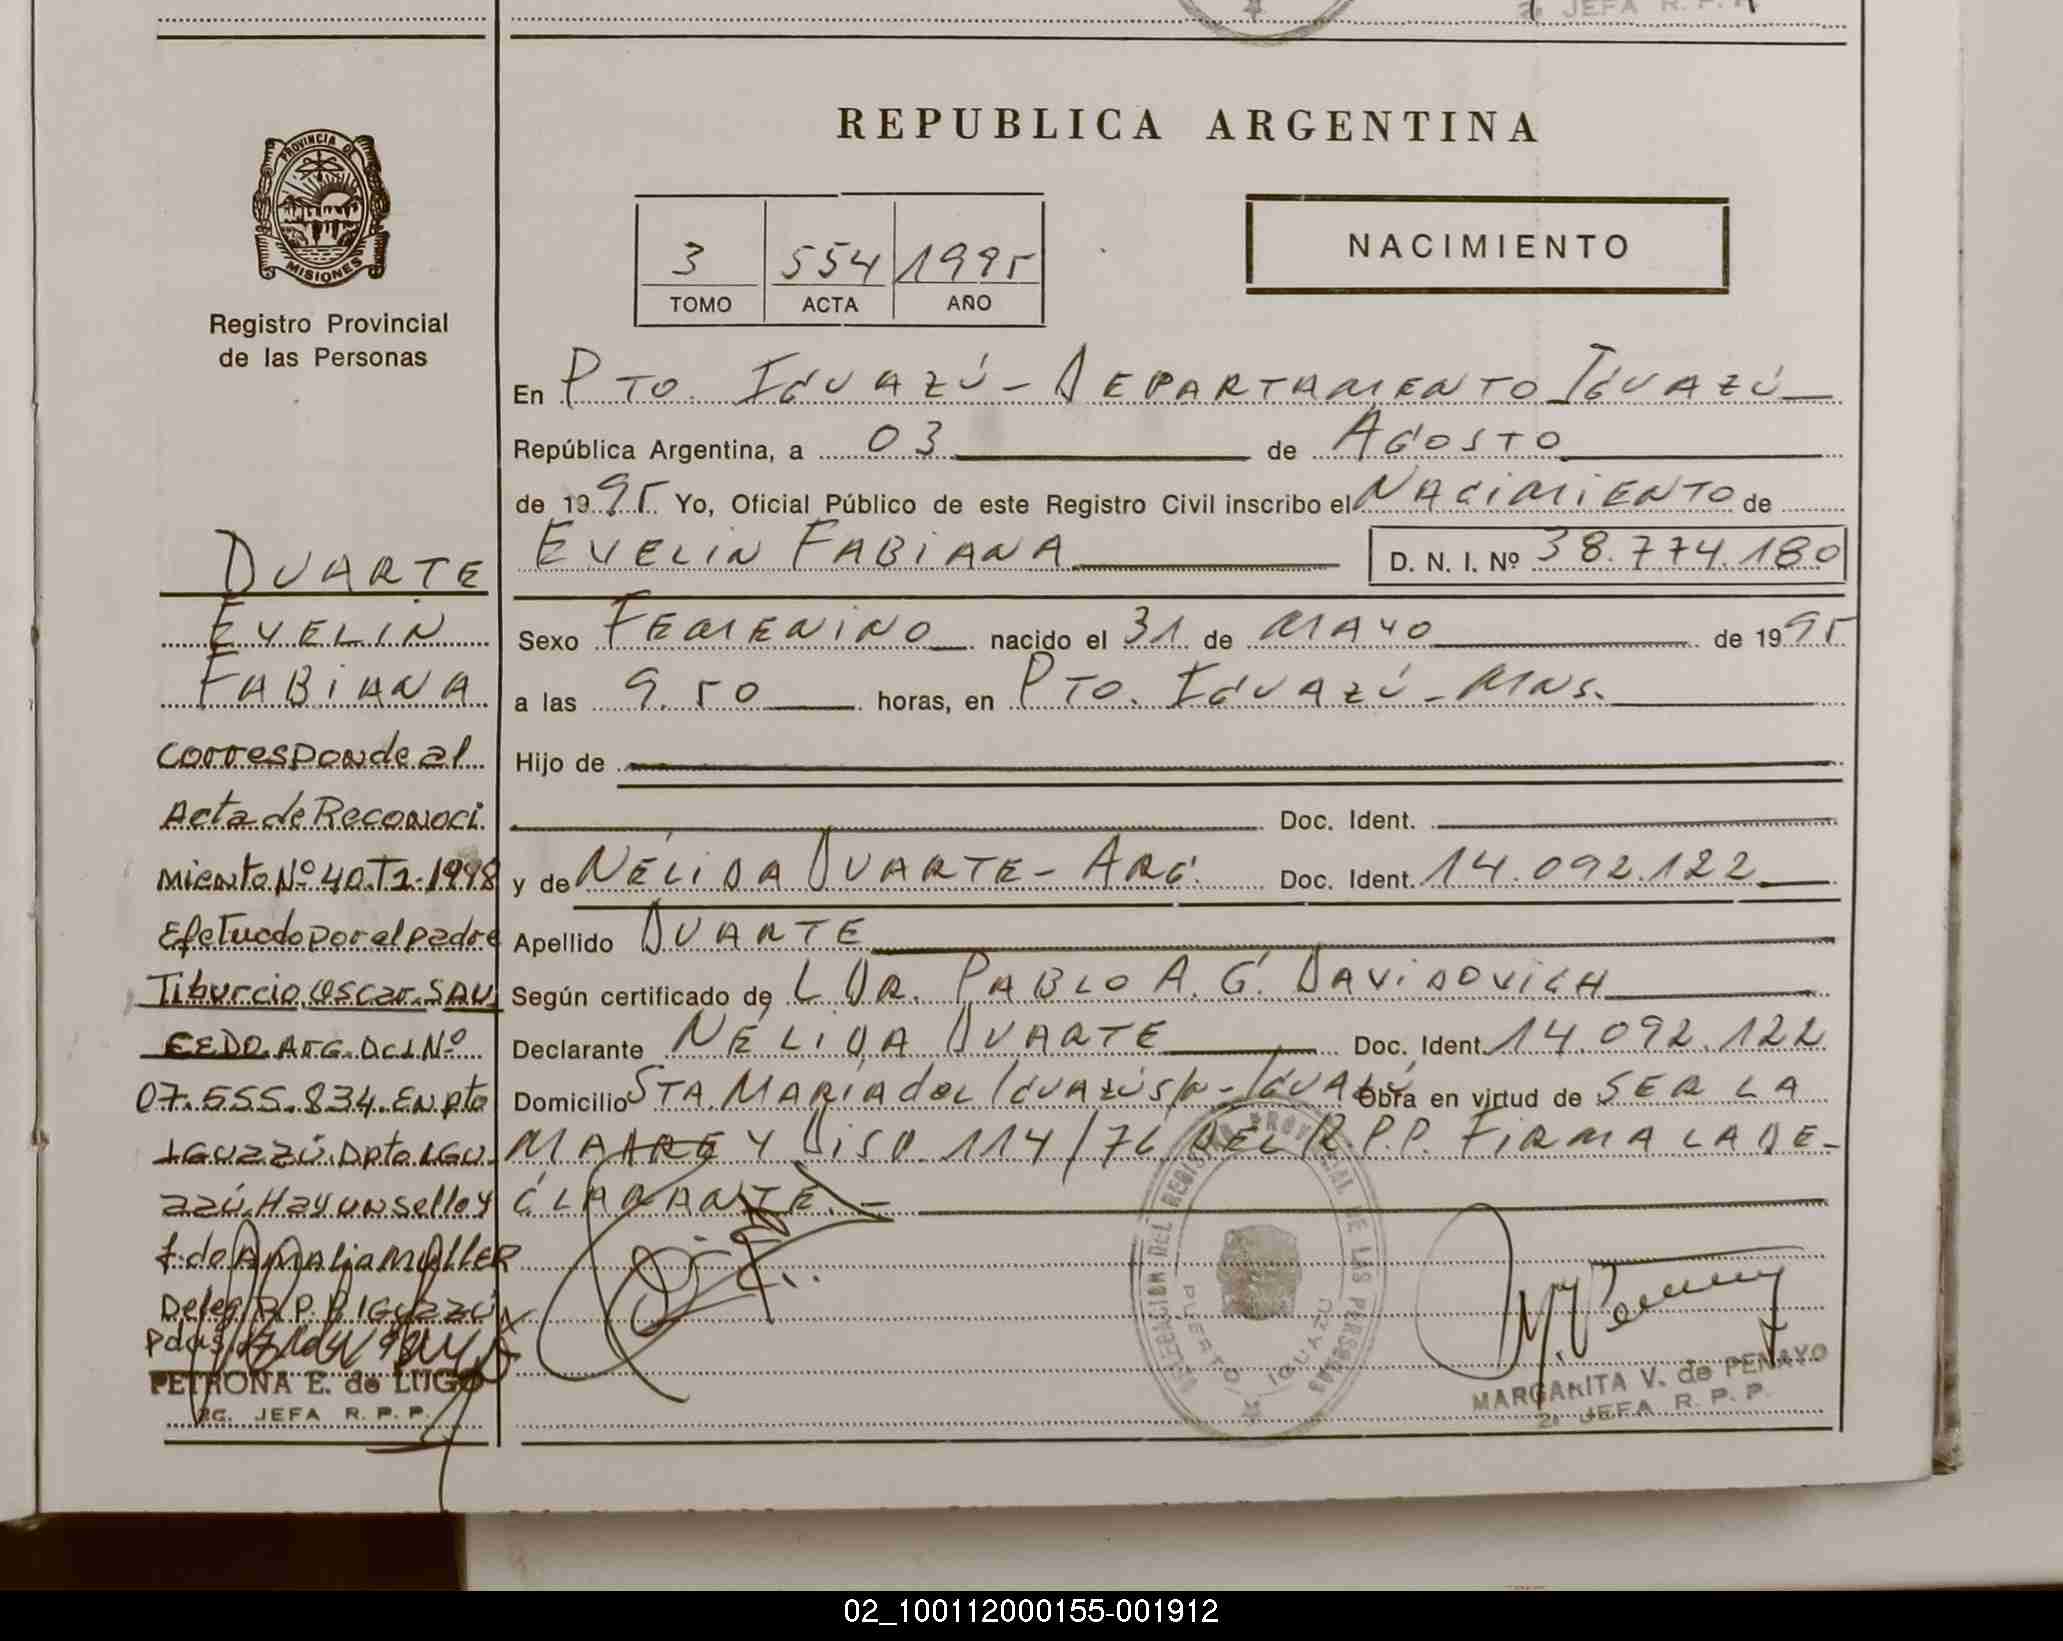 JEFA R. P. P.
REPUBLICA ARGENTINA
PROVINCIA DE
MISIONES
Registro Provincial
de las Personas
3 554 1995
TOMO ACTA AÑO
NACIMIENTO
En PTO. IGUAZÚ - DEPARTAMENTO IGUAZÚ
República Argentina, a 03 de AGOSTO
de 1995 Yo, Oficial Público de este Registro Civil inscribo el NACIMIENTO de
EVELIN FABIANA D. N. I. Nº 38.774.180
Sexo FEMENINO nacido el 31 de MAYO de 1995
a las 9.50 horas, en PTO. IGUAZÚ - MNS.
Hijo de
Doc. Ident.
y de NÉLIDA DUARTE - ARG. Doc. Ident. 14.092.122
Apellido DUARTE
Según certificado de L DR. PABLO A. G. DAVIDOVICH
Declarante NÉLIDA DUARTE Doc. Ident. 14.092.122
Domicilio STA. MARÍA del IGUAZÚ S/N - Obra en virtud de SER LA
MADRE Y DISP. 114/76 DEL R.P.P. FIRMA LA DE-
CLARANTE. -
DELEGACION DEL REGISTRO PROVINCIAL DE LAS PERSONAS
PUERTO IGUAZU
MARGARITA V. de PENAYO
2ª JEFA R. P. P.
DUARTE
EVELIN
FABIANA
corresponde al
Acta de Reconoci
miento Nº 40.T1-1998
Efetuado por el padre
Tiburcio, Oscar. SAU
CEDO. Arg. Dc.I. Nº
07.555.834. En pto
IGUAZÚ. Dpto IGU
azú. Hay un sello y
f. do Amalia MüllER
Deleg. R. P. P. IGUAZÚ
Pdas.
PETRONA E. de LUGO
2ª. JEFA R. P. P.
02_100112000155-001912